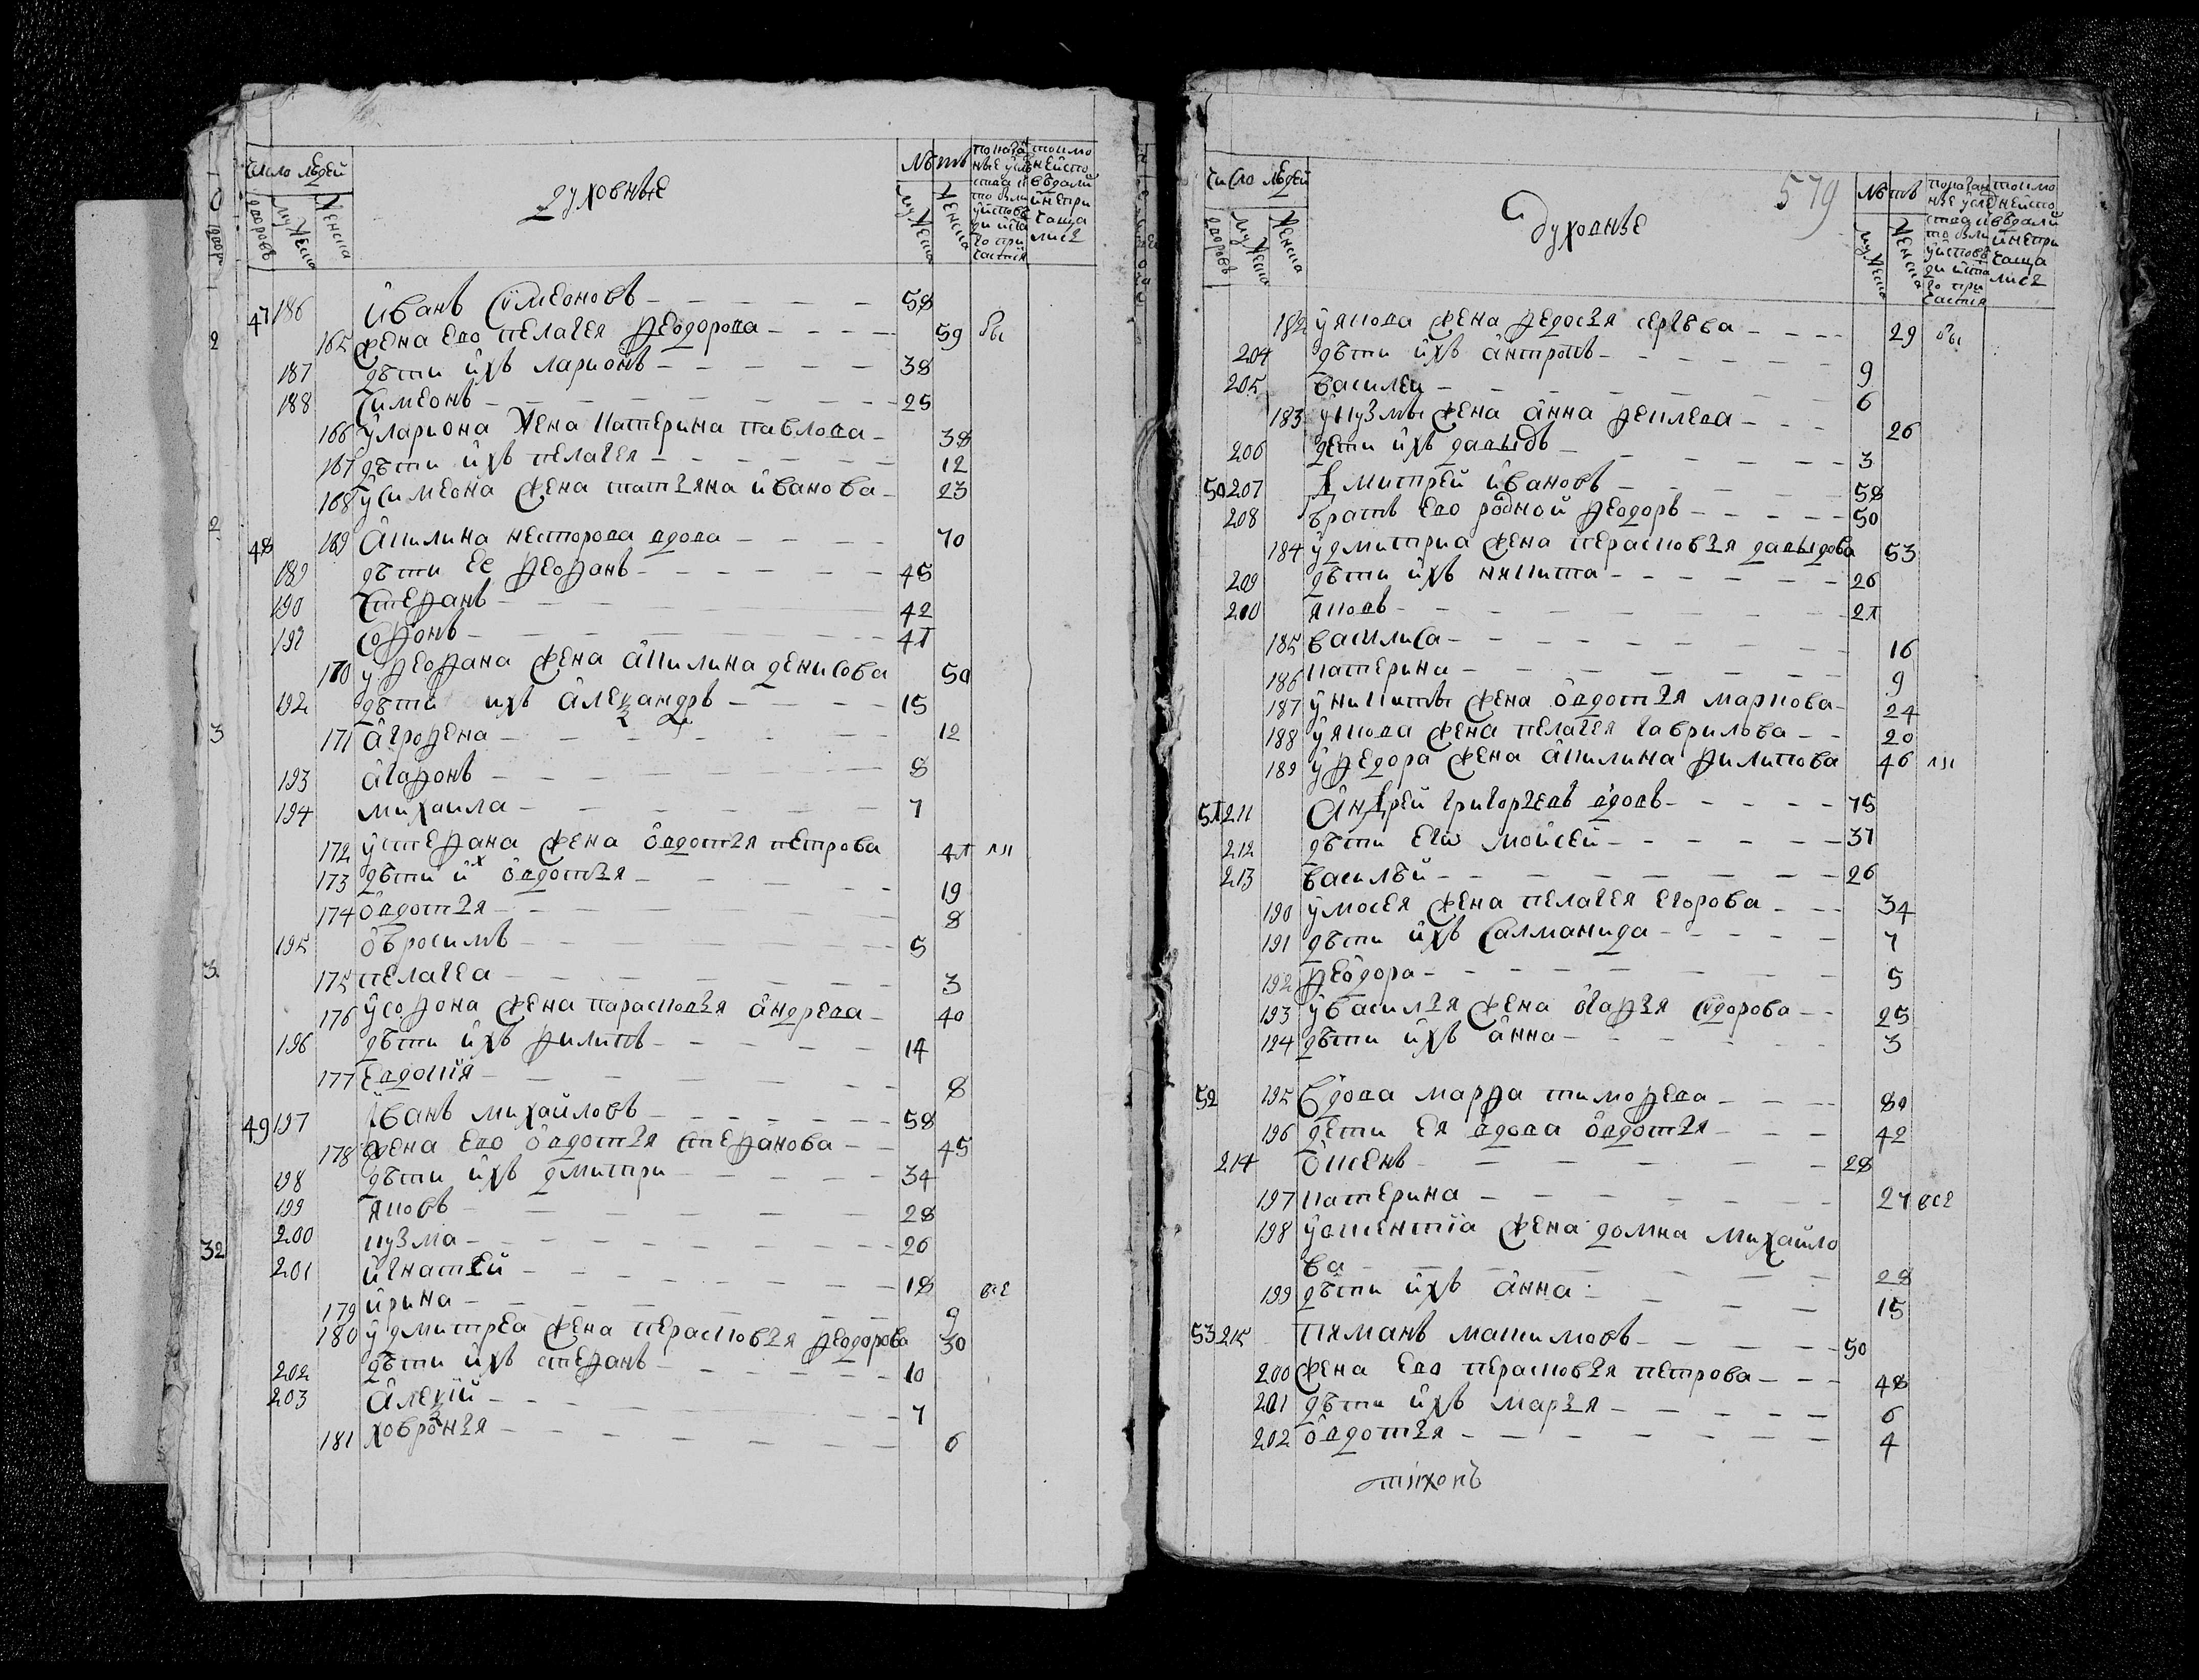 число людей
духовные
лѣтъ
дворовъ
мужеска
женска
мужеска
женска
47 186 Иванъ Симеоновъ 58
165 жена ево пелагея феодорова 59 бы
187 дѣти ихъ ларионъ 38
188 Симеонъ 25
166 у лариона жена катерина павлова 38
167 дѣти ихъ пелагея 12
168 у симеона жена татьяна иванова 23
48 169 Акилина несторова вдова 70
189 дѣти ее феофанъ 45
190 Стефанъ 42
191 Софонъ 41
170 у феофана жена акилина денисова 50
192 дѣти ихъ александръ 15
171 агрофена 12
193 агафонъ 8
194 михаила 7
172 у стефана жена овдотья петрова 41 ли
173 дѣти их овдотья 19
174 овдотья 8
195 обросимъ 5
175 пелагеа 3
176 у софона жена парасковья андреева 40
196 дѣти ихъ филипъ 14
177 Евдокия 8
49 197 Иванъ михайловъ 58
178 жена ево овдотья стефанова 45
198 дѣти ихъ дмитри 34
199 яковъ 28
200 кузма 26
201 игнатей 18 все
179 ирина 9
180 у дмитреа жена перасковья феодорова 30
202 дѣти ихъ стефанъ 10
203 Алекѣй 7
181 ховронья 6
число людей
духовные
579
лѣтъ
дворовъ
мужеска
женска
мужеска
женска
182 у якова жена федосья сергѣва 29 бы
204 дѣти ихъ антропъ 9
205 василеи 6
183 у кузмы жена анна
26
206 дети ихъ давыдъ 3
50 207 Дмитрей ивановъ 58
208 братъ ево родной феодоръ 50
184 у дмитриа жена перасковья давыдова 53
209 дѣти ихъ никита 26
210 яковъ 21
185 василиса 16
186 катерина 9
187 у никиты жена овдотья маркова 24
188 у якова жена пелагея гаврилова 20
189 у федора жена акилина филипова 46 ли
51 211 Андрей григорьевъ вдовъ 75
212 дѣти его мойсей 37
213 василѣй 26
190 у мосея жена пелагея егорова 34
191 дѣти ихъ Салманида 7
192 феодора 5
193 у василья жена огафья сидорова 25
194 дѣти ихъ анна 3
52 195 Вдова марфа тимофева 80
196 дети ея вдова овдотья 42
214 28
197 катерина 27 все
198 жена домна михайло
ва 28
199 дѣти ихъ анна 15
53 215 50
200 жена ево перасковья петрова 48
201 дѣти ихъ марья 6
202 овдотья 4
тихонъ